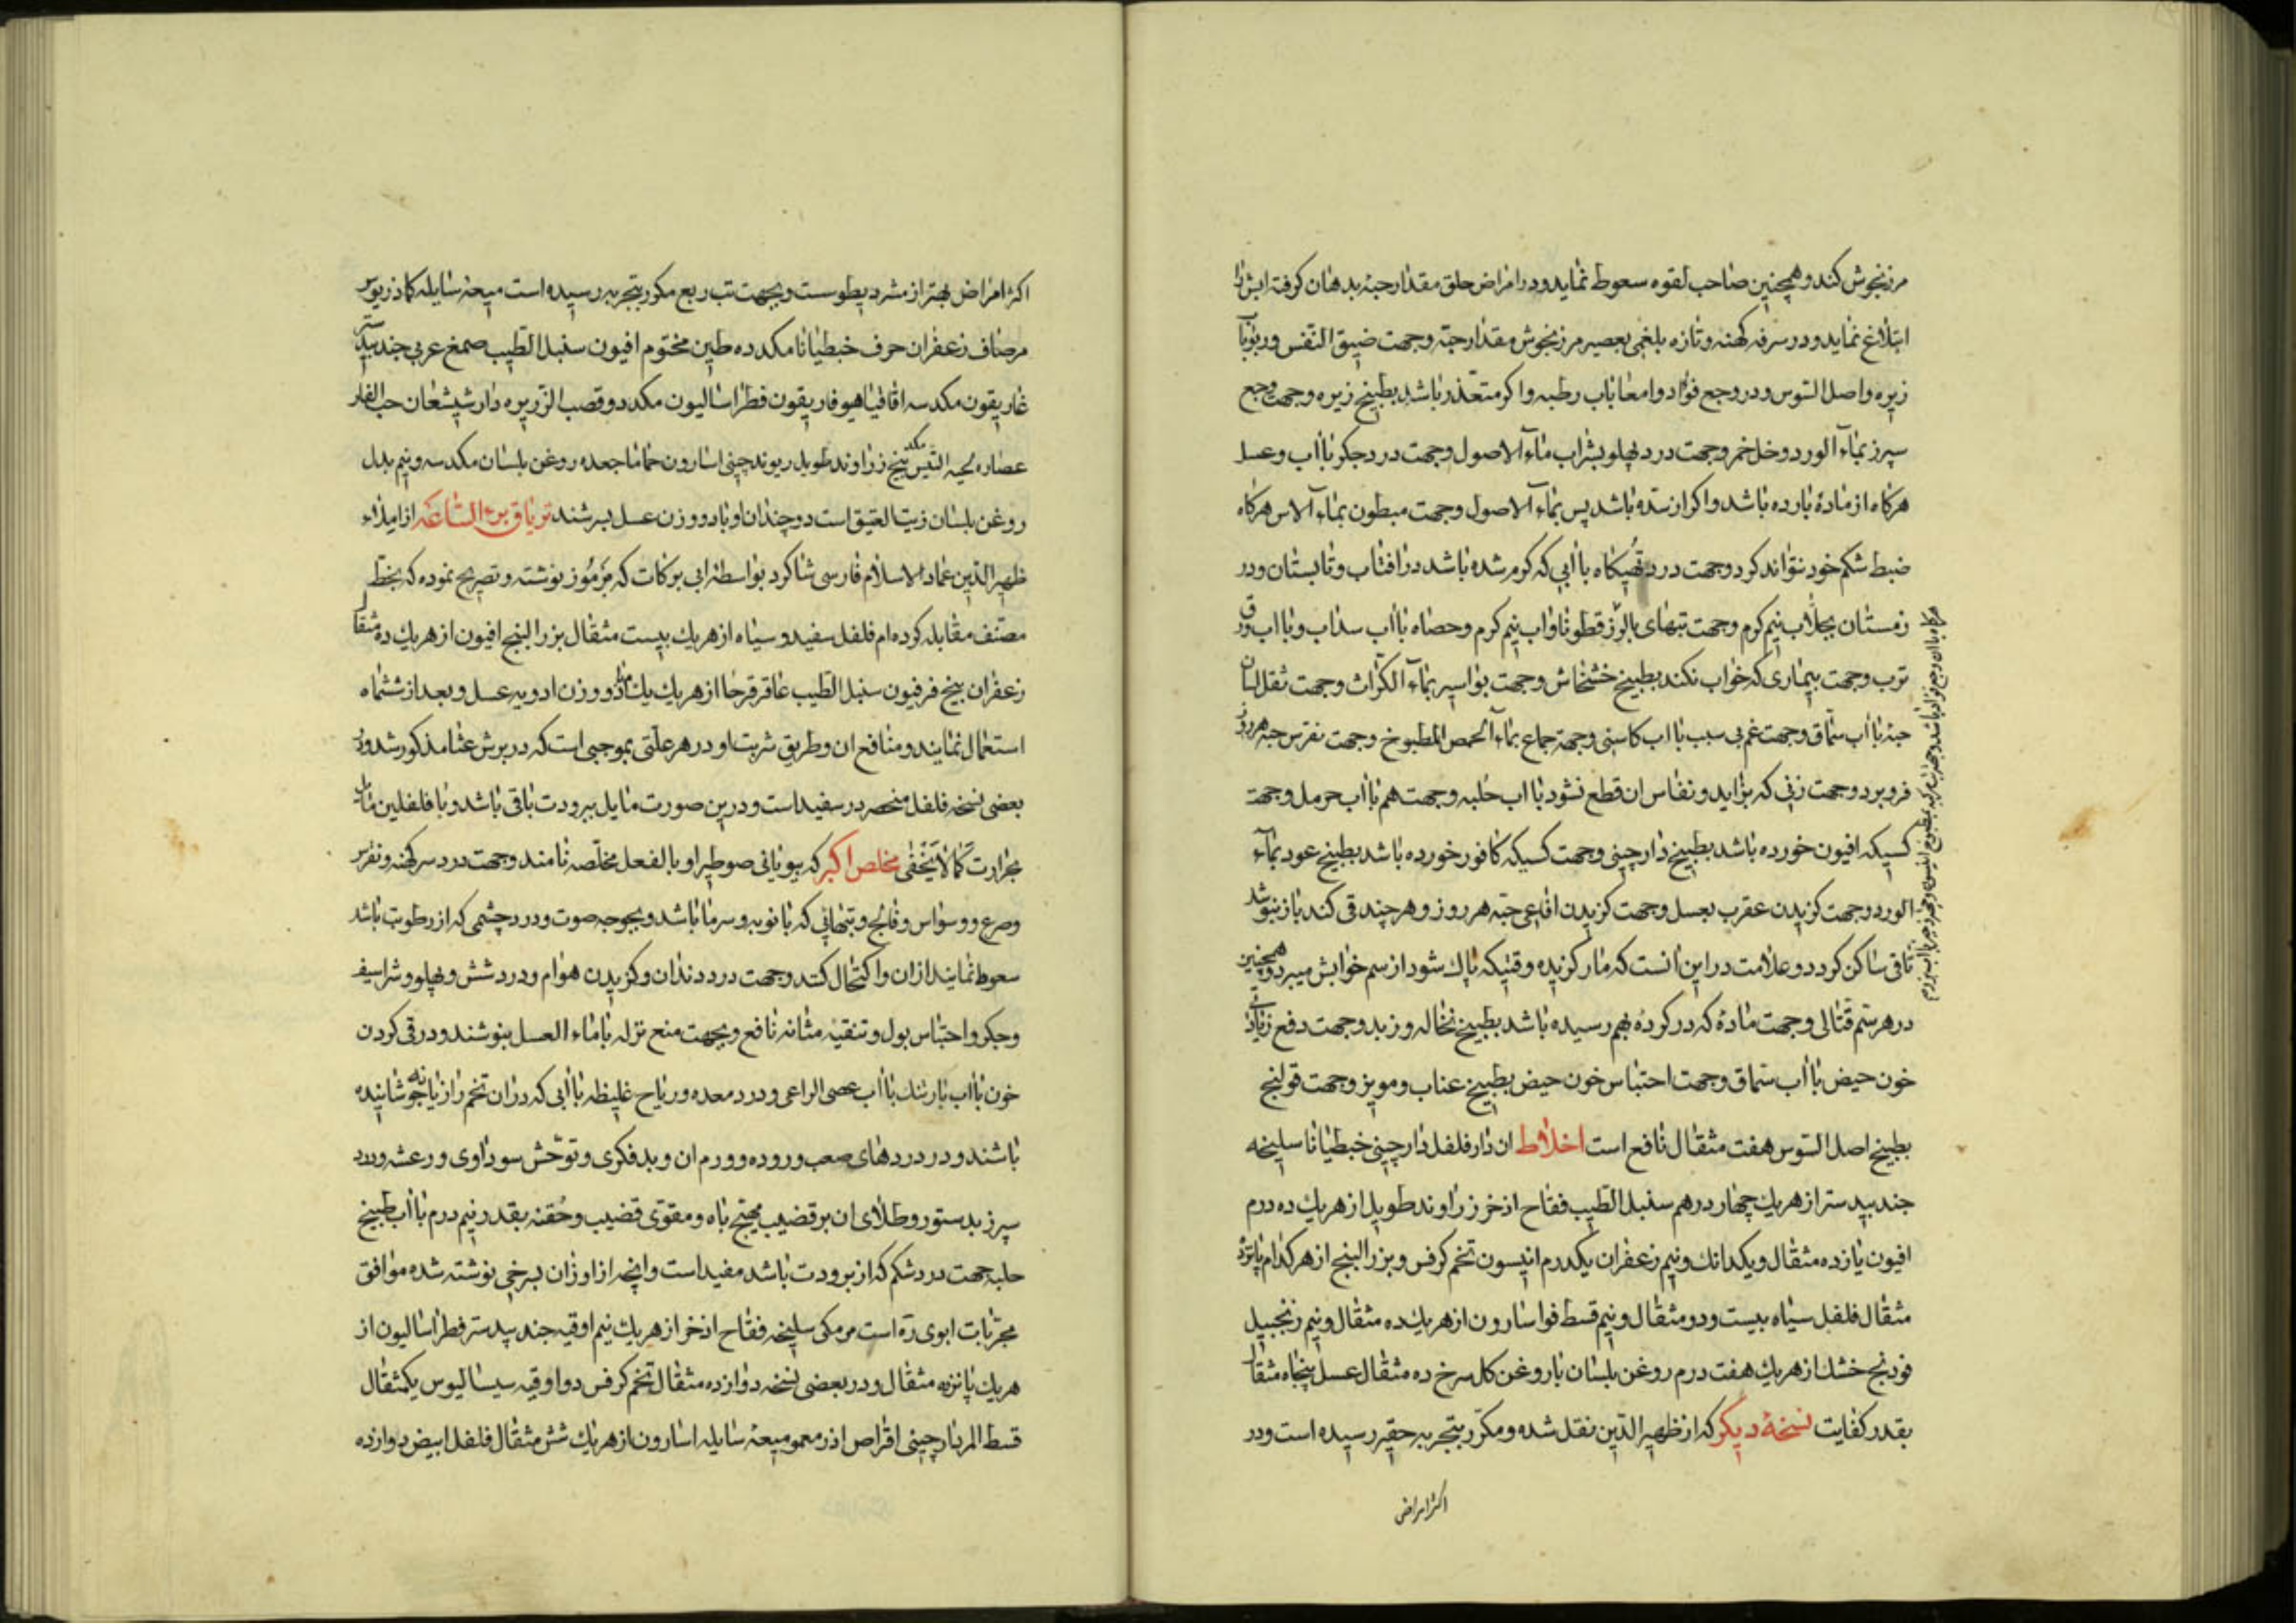 مرزنجوش کند و همچنین صاحب لقوه سعوط نماید و در امراض حلق مقدار حبه بدهان کرفته ابش را
ابتلاع نماید و در سرفه کهنه و تازه بلغمی بعصیر مرزنجوش مقدار حبه وجهت ضیق النفس و ربو با
زیره واصل السوس و در وجع فؤاد و امعا باب رطبه و اکر متعذر باشد بطبیخ زیره وجهت وجع
سپرز بماء الورد و خل خمر وجهت درد پهلو بشراب ماء الاصول وجهت درد جکر با اب و عسل
هرکاه از مادهٔ بارده باشد و اکر از سده باشد پس بماء الاصول وجهت مبطون بماء الاس هرکاه
ضبط شکم خود نتواند کرد وجهت درد تهیکاه با ابی که کرم شده باشد در افتاب و تابستان و در
زمستان بجلاب نیم کرم وجهت تبهای با لرز قطونا و اب نیم کرم و حصاه با اب سداب و با اب ورق
ترب وجهت بیماری که خواب نکند بطبیخ خشخاش وجهت بواسیر بماء الکراث وجهت ثقل لسان
حبه با اب سماق وجهت غم بی سبب با اب کاسنی وجهة جماع بماء الحمص المطبوخ وجهت نقرس حبه هر روز
فرو برد وجهت زنی که بزاید و نفاس ان قطع نشود با اب حلبه وجهت هم با اب حرمل وجهة
کسیکه افیون خورده باشد بطبیخ دارچینی وجهت کسیکه کافور خورده باشد بطبیخ عود بماء
الورد وجهت کزیدن عقرب بعسل وجهت کزیدن افاعی حبه هر روز و هر چند قی کند باز بنوشد
تا قی ساکن کردد و علامت در این انست که مار کزیده وقتیکه پاک شود از سم خوابش میبرد و همچنین
در هر سم قتالی وجهت مادهٔ که در کرده بهم رسیده باشد بطبیخ نخاله و زبد وجهت دفع زیادتی
خون حیض با اب سماق وجهت احتباس خون حیض بطبیخ عناب و مویز وجهت قولنج
بطبیخ اصل السوس هفت مثقال نافع است اخلاط ان دارفلفل دارچینی خبطیانا سلیخه
جندبیدستر از هریک چهار درهم سنبل الطیب فقاح اذخر زراوند طویل از هریک ده درم
افیون یازده مثقال و یکدانک و نیم زعفران یکدرم انیسون تخم کرفس و بزرالبنج از هرکدام پانزده
مثقال فلفل سیاه بیست و دو مثقال و نیم قسط فو اسارون از هریک ده مثقال و نیم زنجبیل
فودنج خشک از هریک هفت درم روغن بلسان یا روغن کل سرخ ده مثقال عسل پنجاه مثقال
بقدر کفایت نسخهٔ دیکر که از ظهیر الدین نقل شده و مکرر بتجربه حقیر رسیده است و در
اکثر امراض
اکثر امراض بهتر از مشردیطوس است و بجهت تب ربع مکرر بتجربه رسیده است میعه سایله کاذریوس
مرصاف زعفران حرف خبطیانا مکد ده طین مختوم افیون سنبل الطیب صمغ عربی جندبیدستر
غاریقون مکد سه اقاقیا هیوفاریقون فطراسالیون مکد دو قصب الزریره دارشیشعان حب الغار
عصاره لحیه التیس مکد پنج زراوند طویل ریوند چینی اسارون حماما جعده روغن بلسان مکد سه و نیم بدل
روغن بلسان زیت العتیق است دو چندان او با دو وزن عسل بسرشند تریاق برء الساعه از امیذاء
ظهیر الدین عماد الاسلام فارسی شاکرد بواسطه ابی برکات که مرموز نوشته و تصریح نموده که بخط
مصنف مقابله کرده ام فلفل سفید و سیاه از هریک بیست مثقال بزر البنج افیون از هریک ده مثقال
زعفران پنج فرفیون سنبل الطیب عاقرقرحا از هریک یک مثقال دو وزن ادویه عسل و بعد از ششماه
استعمال نمایند و منافع ان و طریق شربت او در هر علتی بموجبی است که در برش عثما مذکور شد و در
بعضی نسخه فلفل منحصر در سفید است و درین صورت مایل ببرودت باقی باشد و با فلفلین مایل
بحرارت کما لا یخفی مخلص اکبر که بیونانی صوطیرا و بالفعل مخلصه نامند وجهت درد سر کهنه و نقرس
و صرع و وسواس و فالج و تبهائی که با نوبه و سرما باشد و بحوحه صوت و درد چشمی که از رطوبت باشد
سعوط نمایند از ان و اکتحال کنند وجهت درد دندان و کزیدن هوام و درد شش و پهلو و شراسیف
و جکر و احتباس بول و تنقیهٔ مثانه نافع و بجهت منع نزله با ماء العسل بنوشند و در قی کردن
خون با اب بارتنک با اب عصی الراعی و درد معده و ریاح غلیظه با ابی که در ان تخم رازیانه جوشانیده
باشند و در دردهای صعب و روده و ورم ان و بد فکری و توحش سوداوی و رعشه و درد
سپرز بدستور و طلای ان بر قضیب مهیج باه و مقوی قضیب و حقنه بقدر نیم درم با اب طبیخ
حلبه جهت درد شکم که از برودت باشد مفید است و انچه از اوزان بسرخی نوشته شده موافق
مجربات ابوی ره است مر مکی سلیخه فقاح اذخر از هریک نیم اوقیه جندبیدستر فطراسالیون از
هریک پانزده مثقال و در بعضی نسخه دوازده مثقال تخم کرفس دو اوقیه سیسالیوس یکمثقال
قسط المر دارچینی اقراص اذرمعمو میعهٔ سایله اسارون از هریک شش مثقال فلفل ابیض دوازده